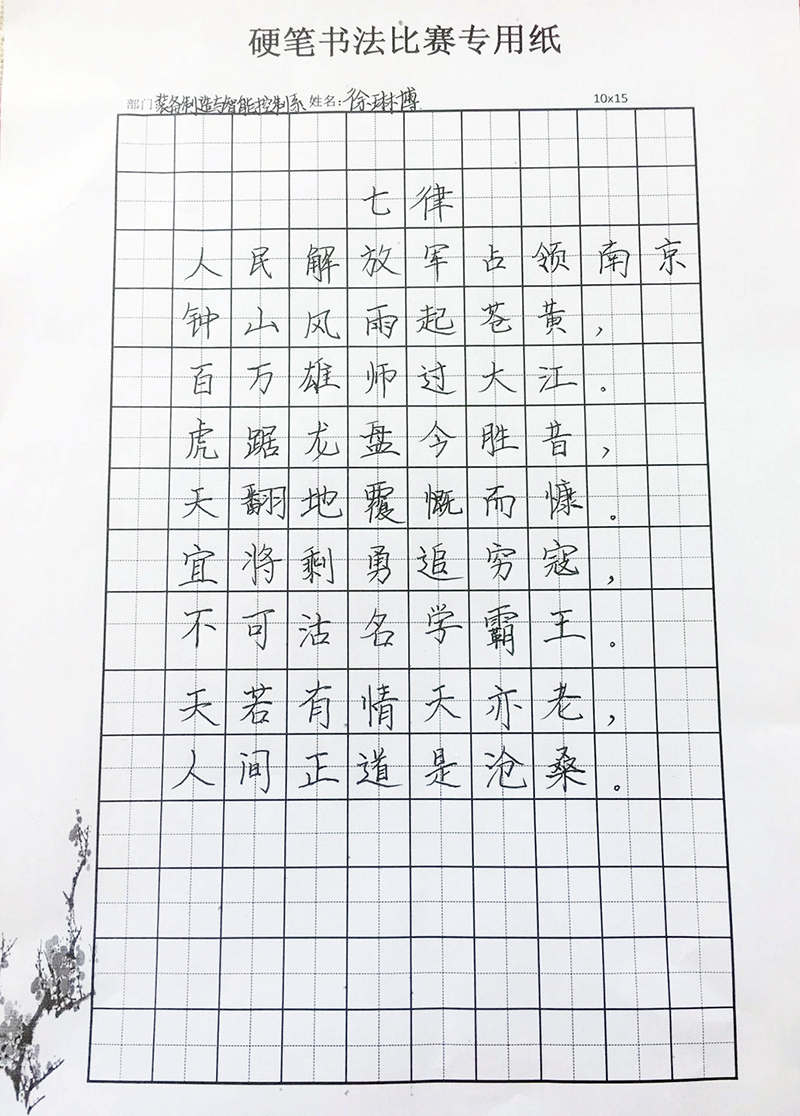 硬笔书法比赛专用纸
部门 装备制造与智能控制系 姓名：徐琳博 10x15
七律
人民解放军占领南京
钟山风雨起苍黄，
百万雄师过大江。
虎踞龙盘今胜昔，
天翻地覆慨而慷。
宜将剩勇追穷寇，
不可沽名学霸王。
天若有情天亦老，
人间正道是沧桑。